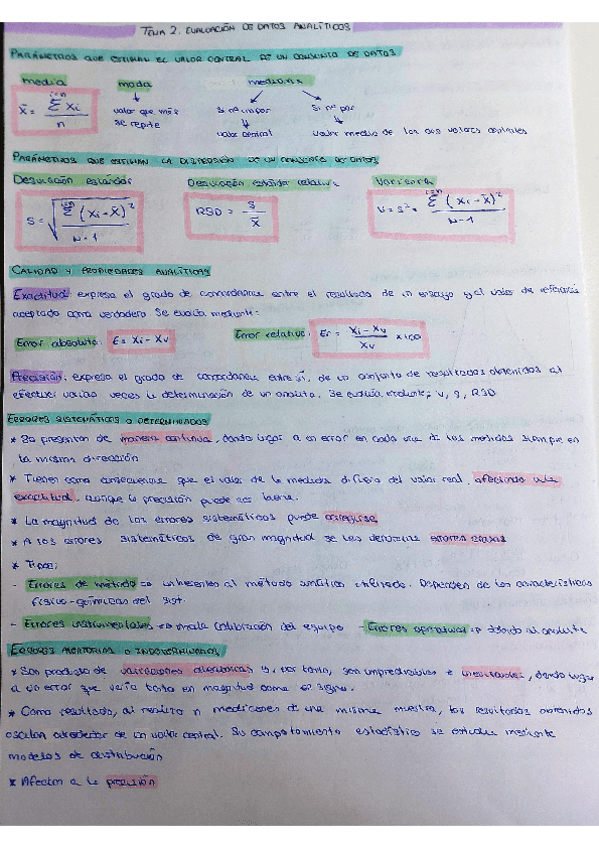 TEMA 2. EVALUACIÓN DE DATOS ANALÍTICOS
PARÁMETROS QUE ESTIMAN EL VALOR CENTRAL DE UN CONJUNTO DE DATOS
media moda mediana
x̄ = Σ xi / n (i=n)
valor que más se repite
Si nº impar Si nº par
valor central valor medio de los dos valores centrales
PARÁMETROS QUE ESTIMAN LA DISPERSIÓN DE UN CONJUNTO DE DATOS
Desviación estándar Desviación estándar relativa Varianza
S = √( Σ (xi - x̄)² / N-1 ) RSD = s / x̄ V = s² = Σ (xi - x̄)² / N-1 (i=n)
CALIDAD Y PROPIEDADES ANALÍTICAS
Exactitud: expresa el grado de concordancia entre el resultado de un ensayo y el valor de referencia
aceptado como verdadero. Se evalúa mediante:
Error absoluto: E = Xi - Xv Error relativo: Er = Xi - Xv / Xv x 100
Precisión: expresa el grado de concordancia entre sí, de un conjunto de resultados obtenidos al
efectuar varias veces la determinación de un analito. Se evalúa mediante; V, S, RSD
ERRORES SISTEMÁTICOS O DETERMINADOS
* Se presentan de manera continua, dando lugar a un error en cada una de las medidas siempre en
la misma dirección
* Tienen como consecuencia que el valor de la medida difiera del valor real, afectando a la
exactitud, aunque la precisión puede ser buena.
* La magnitud de los errores sistemáticos puede corregirse
* A los errores sistemáticos de gran magnitud se les denomina errores crasos
* Tipos:
- Errores de método => inherentes al método analítico utilizado. Dependen de las características
físico-químicas del sist.
- Errores instrumentales => mala calibración del equipo - Errores operativos => debido al analista
ERRORES ALEATORIOS O INDETERMINADOS
* Son producto de variaciones aleatorias y, por tanto, son impredecibles e inevitables, dando lugar
a un error que varía tanto en magnitud como en signo.
* Como resultado, al realizar n mediciones de una misma muestra, los resultados obtenidos
oscilan alrededor de un valor central. Su comportamiento estadístico se estudia mediante
modelos de distribución
* Afectan a la precisión